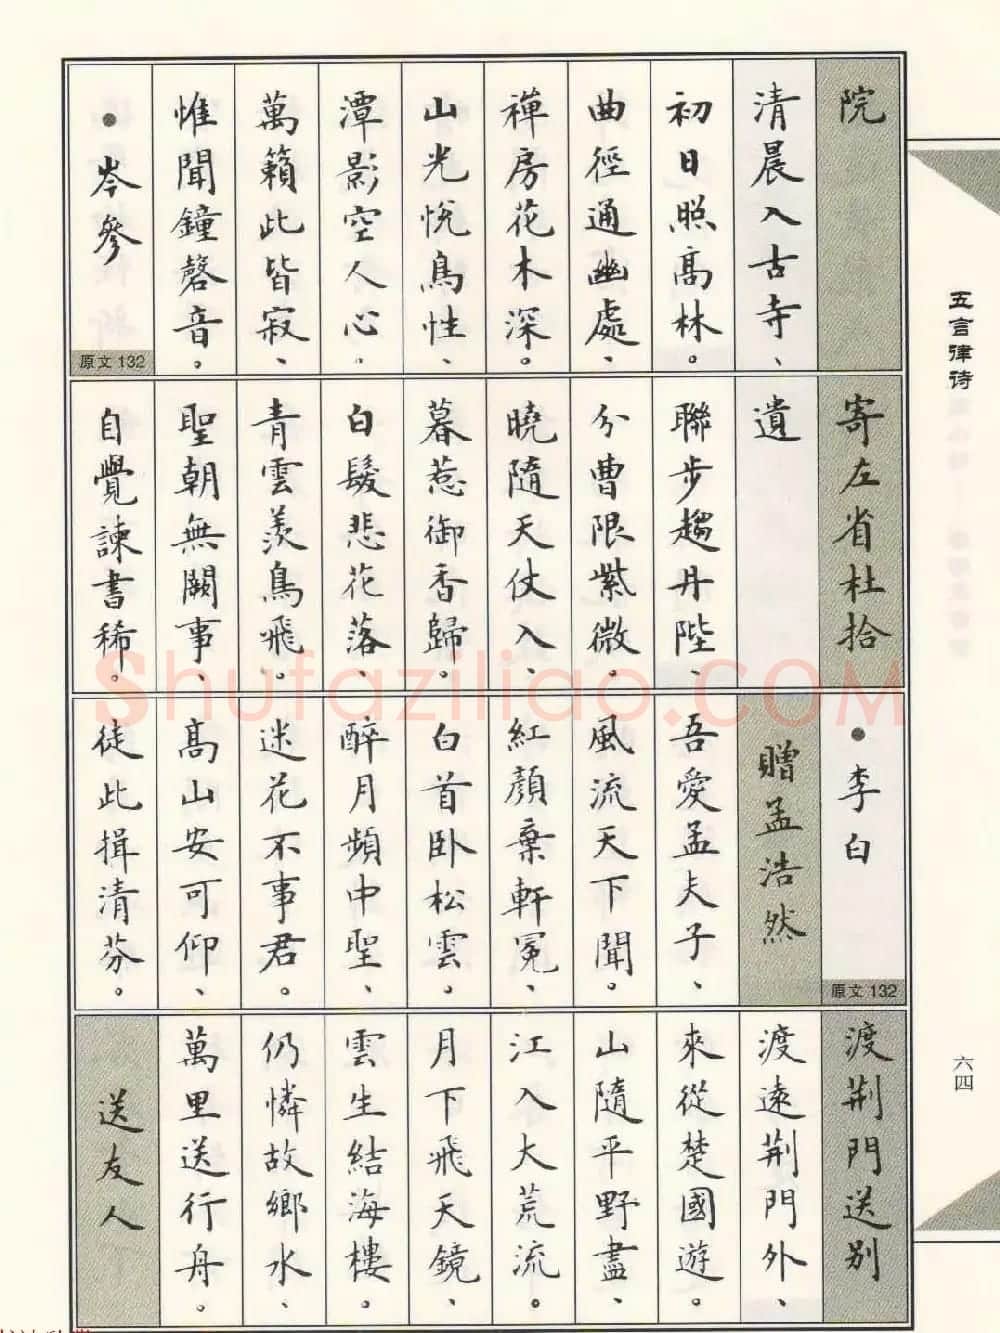 院
清晨入古寺、
初日照高林。
曲徑通幽處、
禪房花木深。
山光悅鳥性、
潭影空人心。
萬籟此皆寂、
惟聞鐘磬音。
•岑參
原文132
寄左省杜拾
遺
聯步趨丹陛、
分曹限紫微。
曉隨天仗入、
暮惹御香歸。
白髮悲花落、
青雲羨鳥飛。
聖朝無闕事、
自覺諫書稀。
•李白
原文132
贈孟浩然
吾愛孟夫子、
風流天下聞。
紅顏棄軒冕、
白首卧松雲。
醉月頻中聖、
迷花不事君。
高山安可仰、
徒此揖清芬。
渡荆門送别
渡遠荆門外、
來從楚國遊。
山隨平野盡、
江入大荒流。
月下飛天鏡、
雲生結海樓。
仍憐故鄉水、
萬里送行舟。
送友人
五言律诗
六四
Shufaziliao.COM